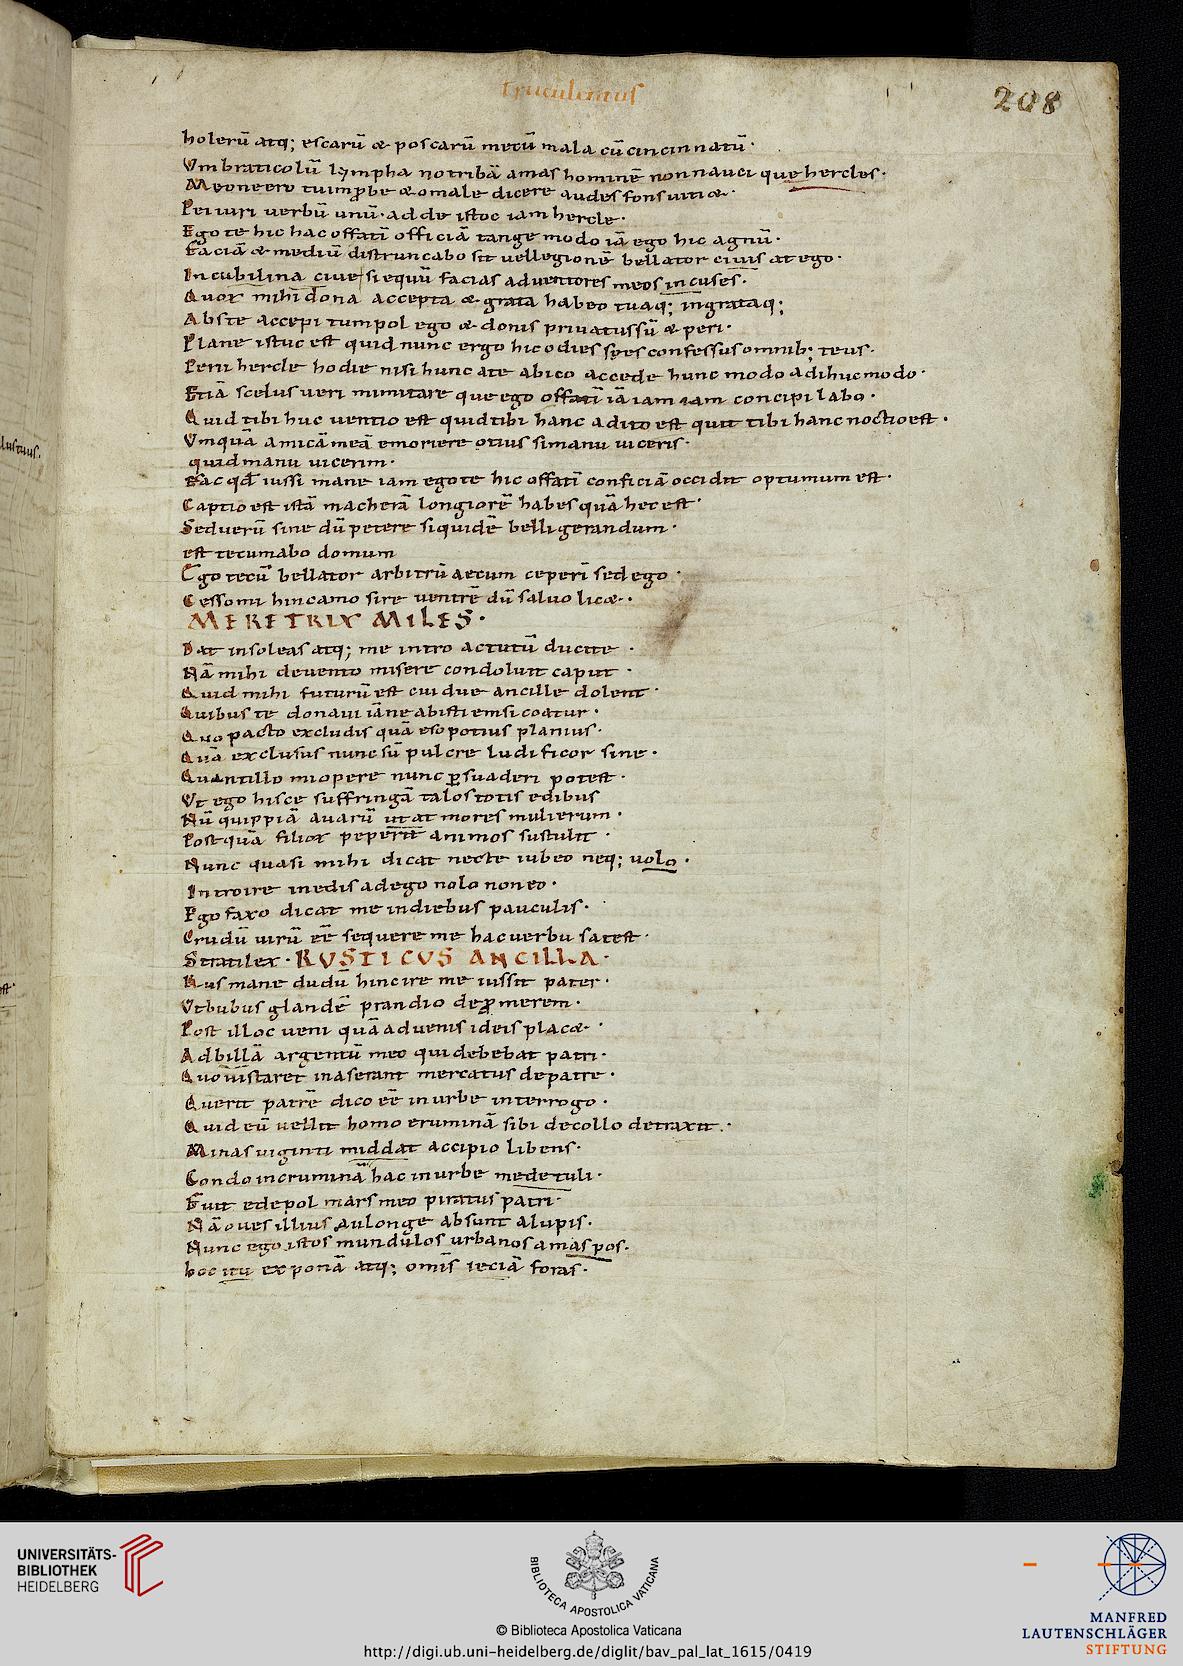 truculentus
208
holerū atq; escarū & poscarū mecū mala cū cincinnatū·
Vmbraticolū lympha notribā amas hominē non nauci que hercles·
Meoneero tuimprobe & omale dicere audes fons uiti&·
Peiuiri uerbū unū· adde istoc iam hercle·
Ego te hic hac offatī officiā tange modo iā ego hic agnū·
Faciā & mediū distruncabo sit uellegionē bellator ciuis at ego·
In cubilina ciue si equū facias aduentores meos in cuses·
Quor mihi dona accepta & grata habeo tuaq; ingrataq;
Abste accepi tum pol ego & donis priuatus sū & peri·
Plane istuc est quid nunc ergo hic odies spes confessus omnib; teus·
Peri hercle hodie nisi hunc ate abico accede hunc modo adihuc modo·
Etiā scelus ueri minitare que ego offatī iā iam iam concipilabo·
Quid tibi huc uentio est quid tibi hanc adito est quit tibi hanc noctio est·
Vmquā amicā meā emoriere otius si manu uiceris·
quid manu uicerim·
Fac qđ iussi mane iam ego te hic offatī conficiā occidit optumum est·
Captio est istā macherā longiorē habes quā hec est·
Sed uerū sine dū petere siquidē belligerandum·
est tecum abo domum
Ego tecū bellator arbitrū aecum ceperī sed ego·
Cesso mi hinc amo sire uentrē dū saluo lic&·
MERETRIX MILES·
Dat in soleas atq; me intro actutū ducite·
Nā mihi deuento misere condoluit caput·
Quid mihi futurū est cui due ancille dolent·
Quibus te donaui iāne abisti emsicoatur·
Quo pacto excludis quā eso potius planius·
Quā exclusus nunc sū pulcre ludificor sine·
Quantillo miopere nunc ꝑsuaderi potest·
Vt ego hisce suffringā talos totis edibus
Nū quippiā auarū ut at mores mulierum·
Postquā filior peperit animos sustulit·
Nunc quasi mihi dicat necte iubeo neq; uolo·
Introire in edis ad ego nolo non eo·
Ego faxo dicat me in diebus pauculis·
Crudū uirū eē sequere me hac uerbu sat est·
Stratilex· RUSTICUS ANCILLA·
Rus mane dudū hinc ire me iussit pater·
Vtbubus glandē prandio depromerem·
Post illoc ueni quā aduenis ideis plac&·
Ad billā argentū meo qui debebat patri·
Quo uistaret inaserant mercatus de patre·
Querit patrē dico eē in urbe interrogo·
Quid eū uellit homo eruminā sibi decollo detraxit·
Minas uiginti middat accipio libens·
Condo in cruminā hac in urbe medetuli·
Fuit edepol mars meo piratus patri·
Nā oues illius aulonge absunt a lupis·
Nunc ego istos mundulos urbanos amas pos·
hoc itu exponā atq; omīs ieciā foras·
UNIVERSITÄTS-
BIBLIOTHEK
HEIDELBERG
BIBLIOTECA APOSTOLICA VATICANA
© Biblioteca Apostolica Vaticana
http://digi.ub.uni-heidelberg.de/diglit/bav_pal_lat_1615/0419
MANFRED
LAUTENSCHLÄGER
STIFTUNG